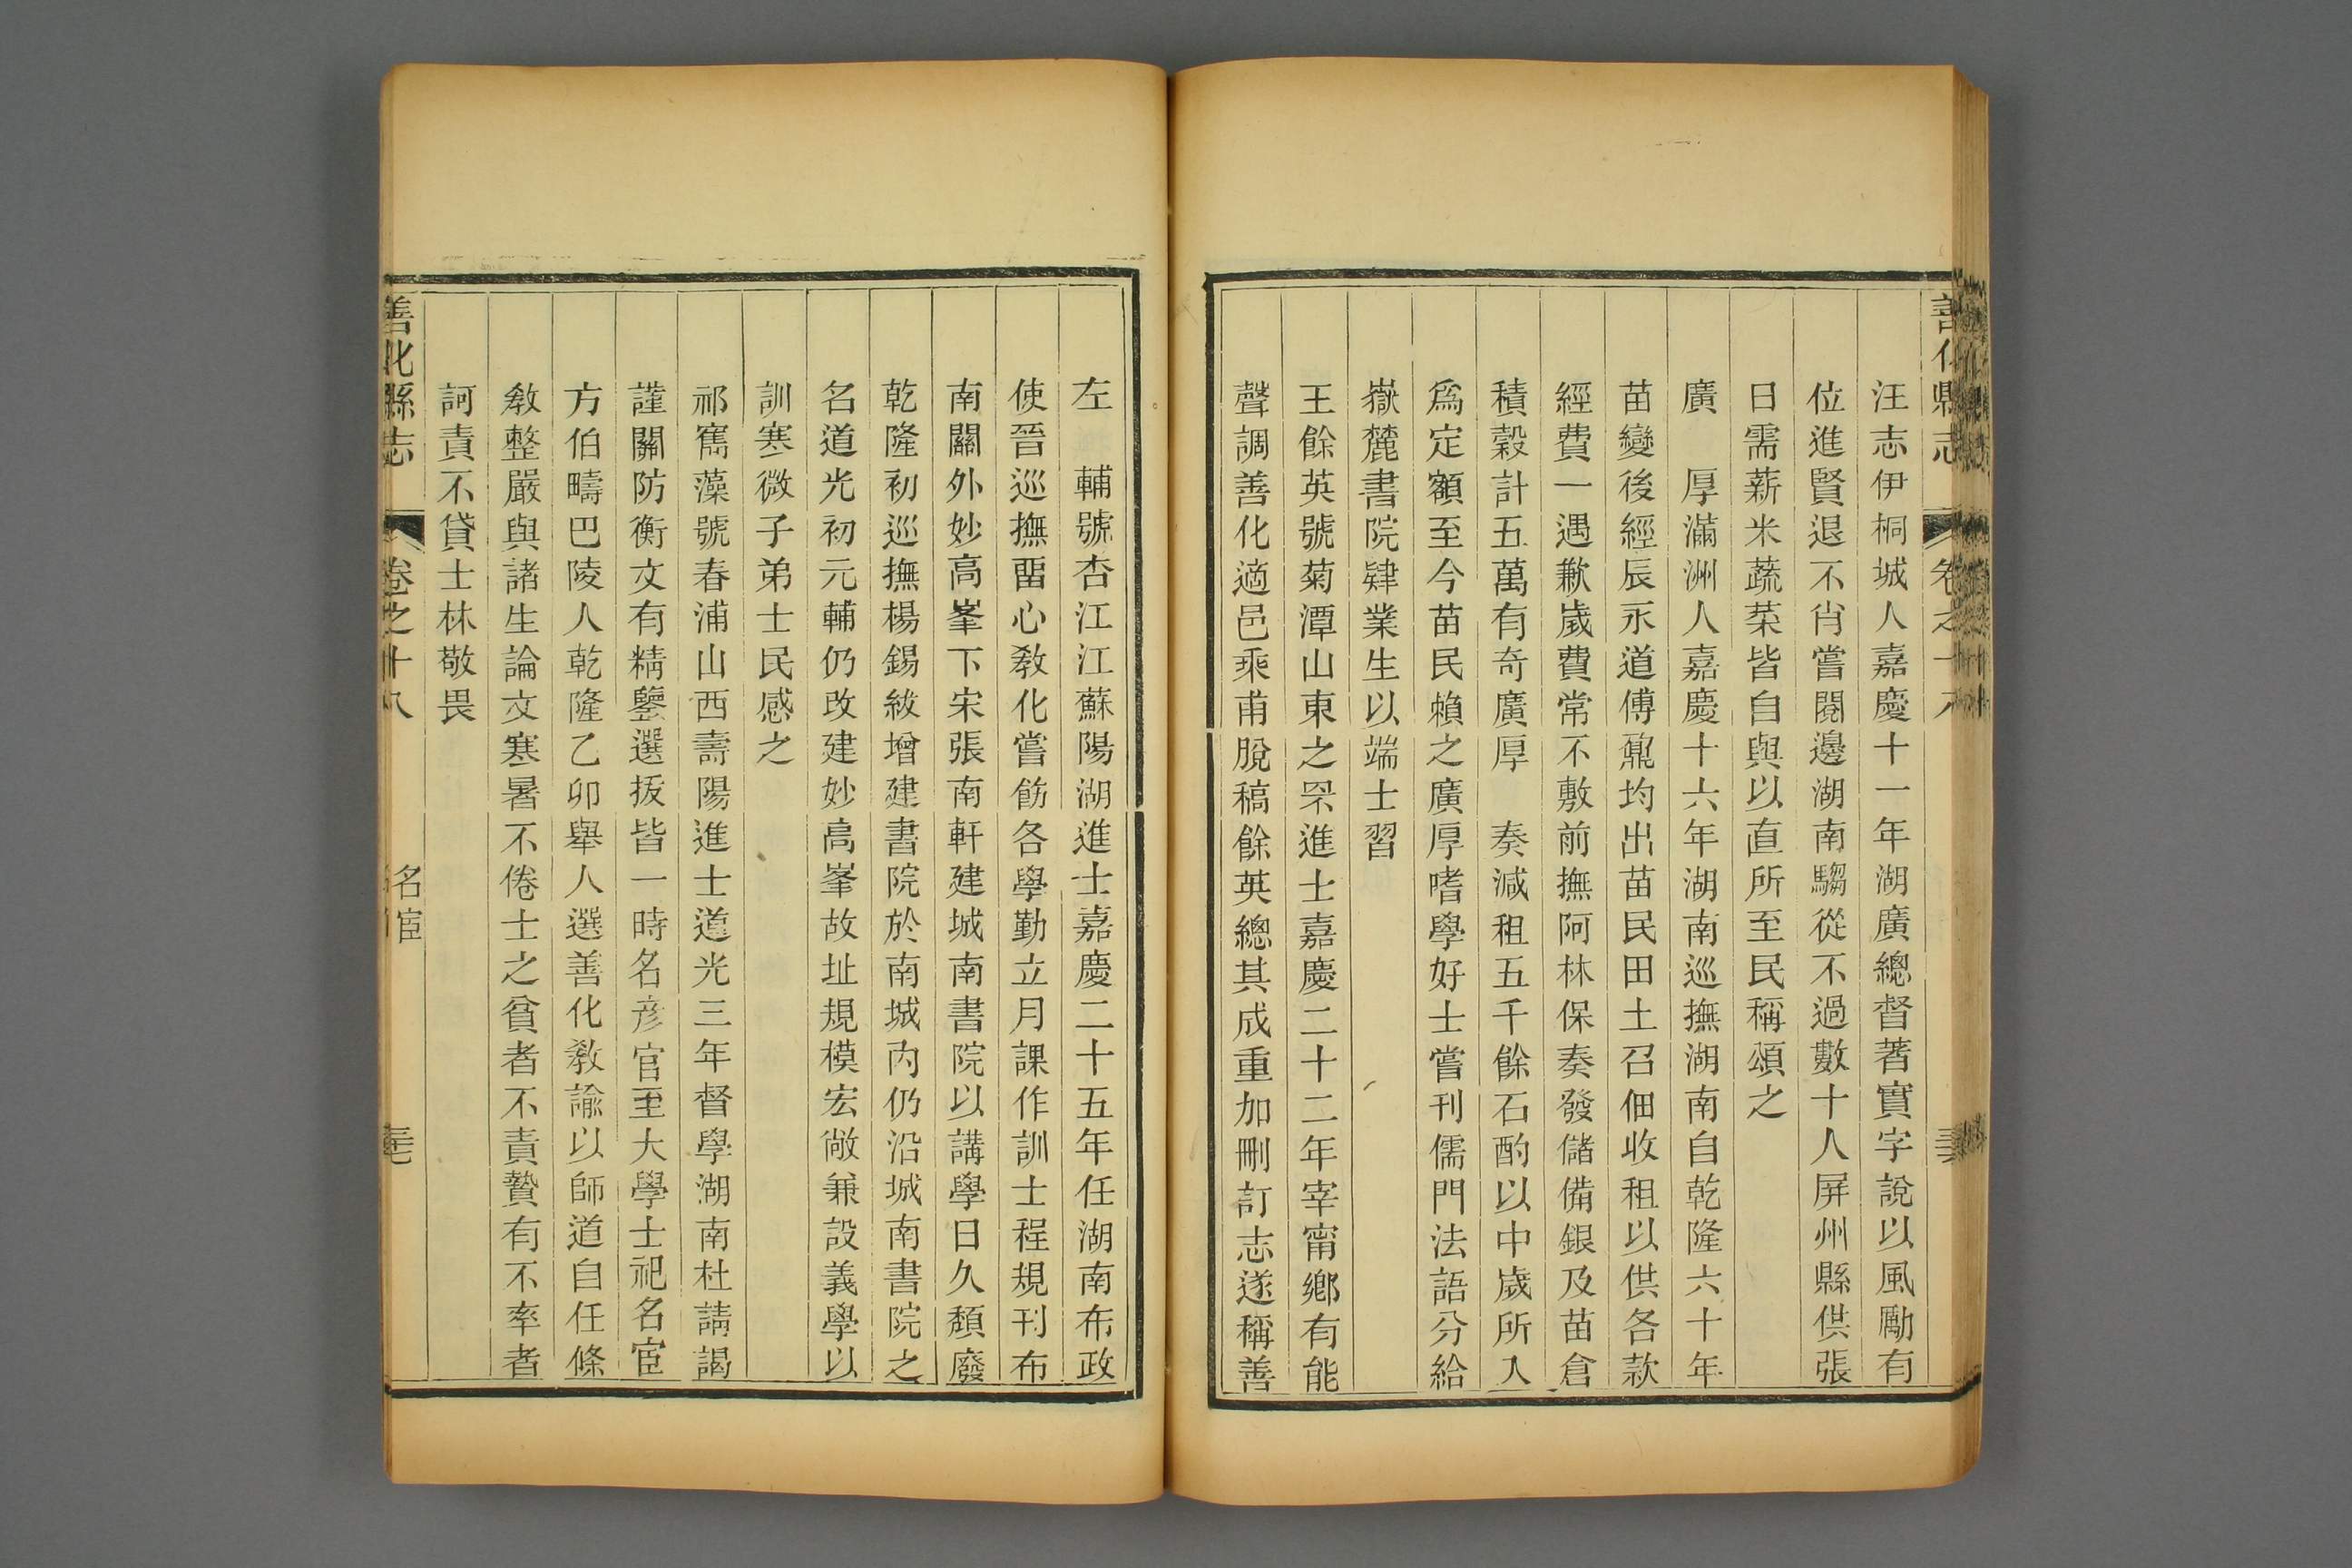 善化縣志 卷之十八
汪志伊桐城人嘉慶十一年湖廣總督著實字說以風勵有
位進賢退不肖嘗閱邊湖南騶從不過數十人屏州縣供張
日需薪米蔬菜皆自與以直所至民稱頌之
廣 厚滿洲人嘉慶十六年湖南巡撫湖南自乾隆六十年
苗變後經辰永道傅鼐均出苗民田土召佃收租以供各款
經費一遇歉歲費常不敷前撫阿林保奏發儲備銀及苗倉
積穀計五萬有奇廣厚 奏減租五千餘石酌以中歲所入
爲定額至今苗民賴之廣厚嗜學好士嘗刊儒門法語分給
嶽麓書院肄業生以端士習
王餘英號菊潭山東之罘進士嘉慶二十二年宰甯鄉有能
聲調善化適邑乘甫脫稿餘英總其成重加刪訂志遂稱善
左 輔號杏江江蘇陽湖進士嘉慶二十五年任湖南布政
使晉巡撫畱心敎化嘗飭各學勤立月課作訓士程規刊布
南關外妙高峯下宋張南軒建城南書院以講學日久頹廢
乾隆初巡撫楊錫紱增建書院於南城內仍沿城南書院之
名道光初元輔仍改建妙高峯故址規模宏敞兼設義學以
訓寒微子弟士民感之
祁寯藻號春浦山西壽陽進士道光三年督學湖南杜請謁
謹關防衡文有精鑒選拔皆一時名彥官至大學士祀名宦
方伯疇巴陵人乾隆乙卯舉人選善化敎諭以師道自任條
敎整嚴與諸生論文寒暑不倦士之貧者不責贄有不率者
訶責不貸士林敬畏
善化縣志 卷之十八 名宦